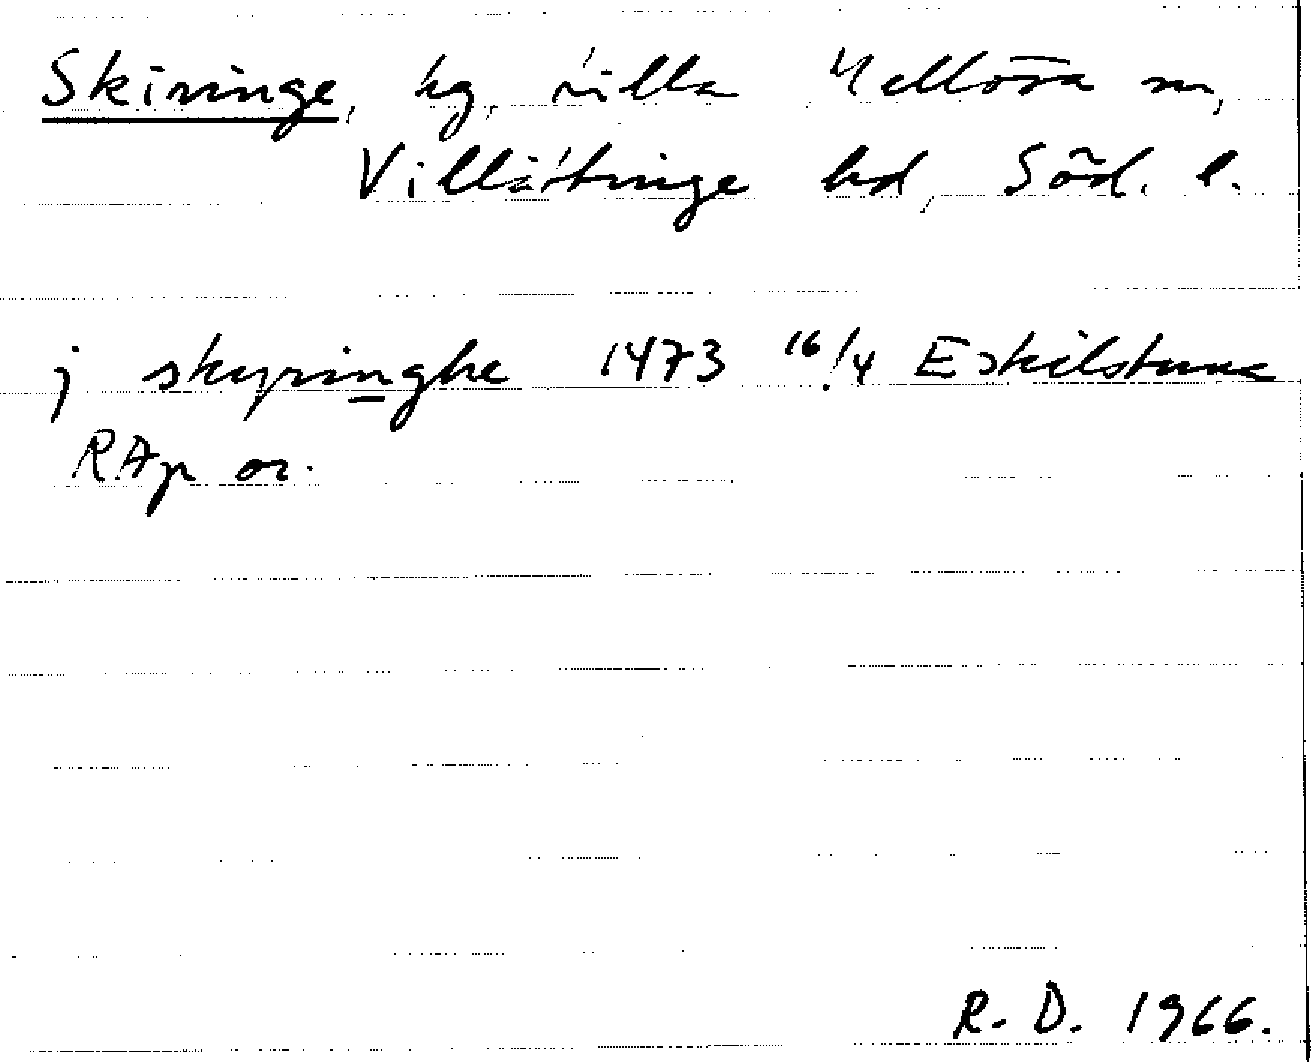 Skiringe, hg, Lilla Mellösa sn,
Villåttinge hd, Söd. l.
j skyringhe 1473 16/4 Eskilstuna
RAp or.
R. D. 1966.